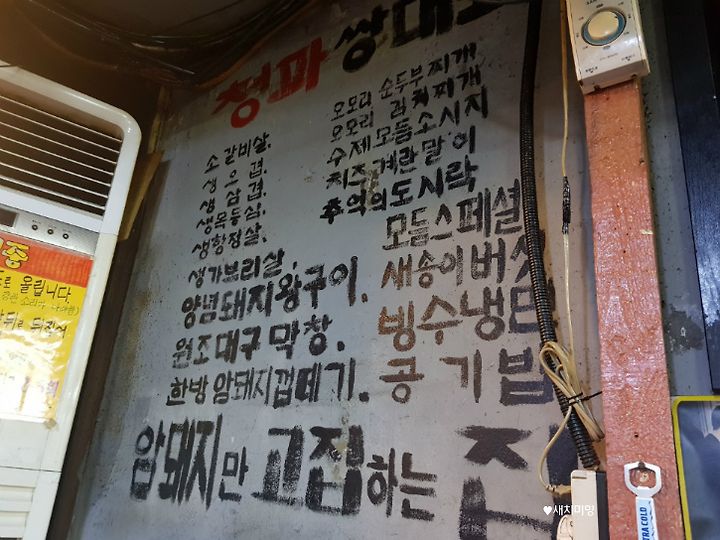 청파 쌍대포
소갈비살.
생오겹.
생삼겹.
생목등심.
생항정살.
생가브리살.
양념돼지왕구이.
원조대구막창.
한방암돼지껍떼기.
오모리 순두부찌개
오모리 김치찌개
수제모듬소시지
치즈계란말이
추억의도시락
모듬스페셜
새송이버섯
빙수냉면
공기밥
암돼지만 고집하는 집
로 올립니다.
♥새치미양
XTRA COLD